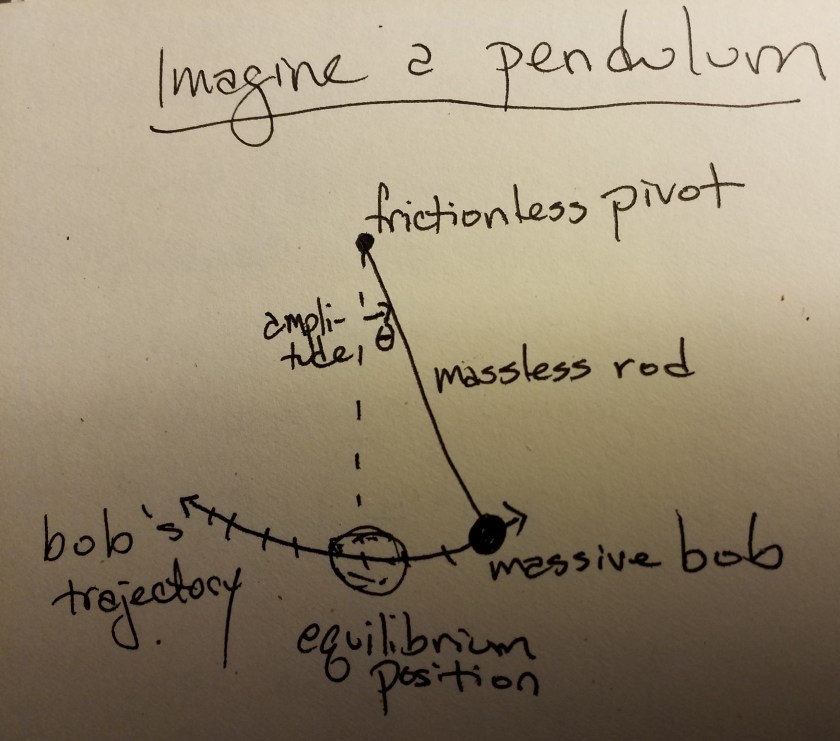 Imagine a pendulum
frictionless pivot
ampli-
tude,
θ
massless rod
bob's
trajectory
massive bob
equilibrium
position